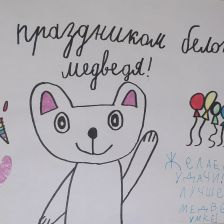 праздником бело
медведя!
Желае
удачи
лучше
медве
умке